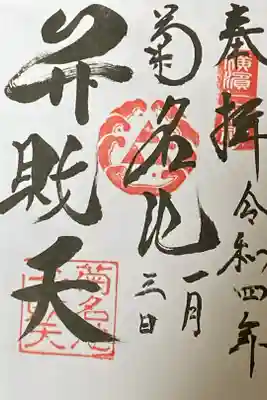 奉拝
横濱
令和四年
一月
三日
菊名池
弁財天
菊名池
弁財天